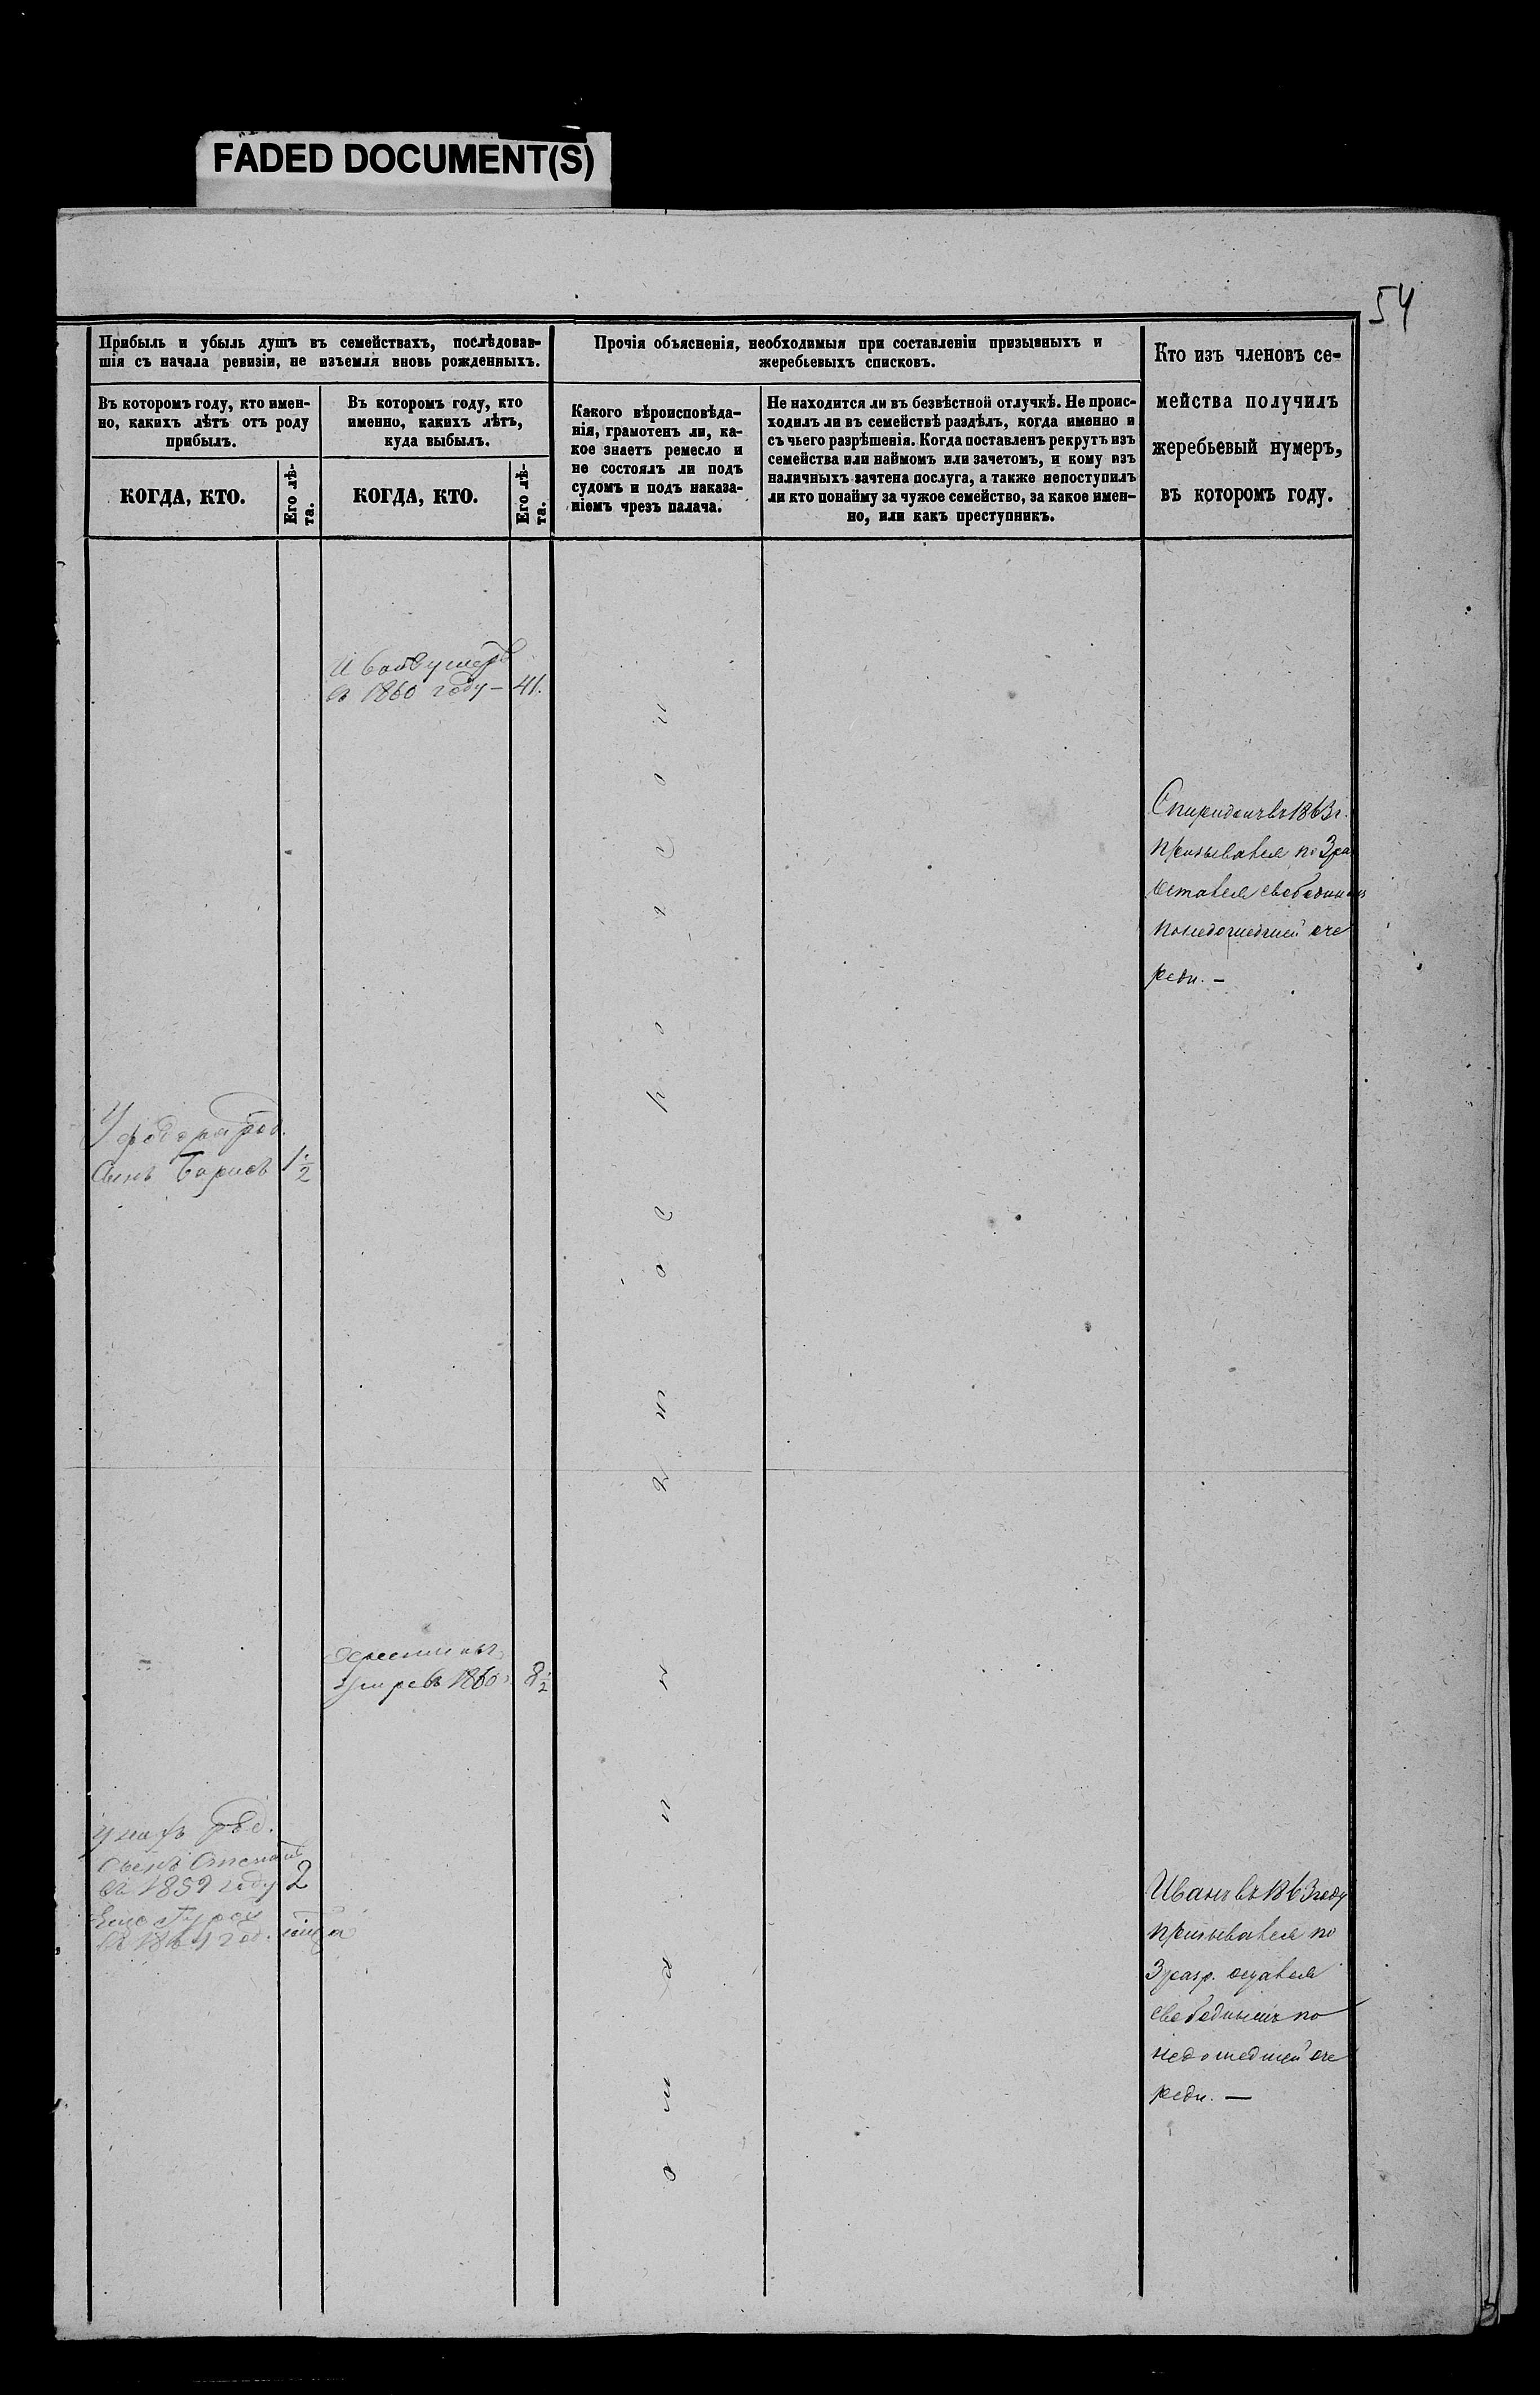 FADED DOCUMENT(S)
54
Прибыль и убыль душъ въ семействахъ, послѣдовав-
шія съ начала ревизіи, не изъемля вновь рожденныхъ.
Въ которомъ году, кто имен-
но, какихъ лѣтъ отъ роду
прибылъ.
КОГДА, КТО.
Его лѣ-
та.
Въ которомъ году, кто
именно, какихъ лѣтъ,
куда выбылъ.
КОГДА, КТО.
Его лѣ-
та.
Прочія объясненія, необходимыя при составленіи призывныхъ и
жеребьевыхъ списковъ.
Какого вѣроисповѣда-
нія, грамотенъ ли, ка-
кое знаетъ ремесло и
не состоялъ ли подъ
судомъ и подъ наказа-
ніемъ чрезъ палача.
Не находится ли въ безвѣстной отлучкѣ. Не проис-
ходилъ ли въ семействѣ раздѣлъ, когда именно и
съ чьего разрѣшенія. Когда поставленъ рекрутъ изъ
семейства или наймомъ или зачетомъ, и кому изъ
наличныхъ зачтена послуга, а также непоступилъ
ли кто понайму за чужое семейство, за какое имен-
но, или какъ преступникъ.
Кто изъ членовъ се-
мейства получилъ
жеребьевый нумеръ,
въ которомъ году.
Иванъ умеръ
въ 1860 году — 41.
Спиридонъ въ 1863 г.
призывался по 3 раз
остался свободнымъ
понедошедшей оче
реди. —
У федора род.
сынъ Борисъ 1 1/2
умре въ 1860 8 1/2
род.
сынъ Степанъ
въ 1859 году 2
Иванъ въ 1863 году
призывался по
3 разр. остался
свободнымъ по
недошедшей оче
реди. —